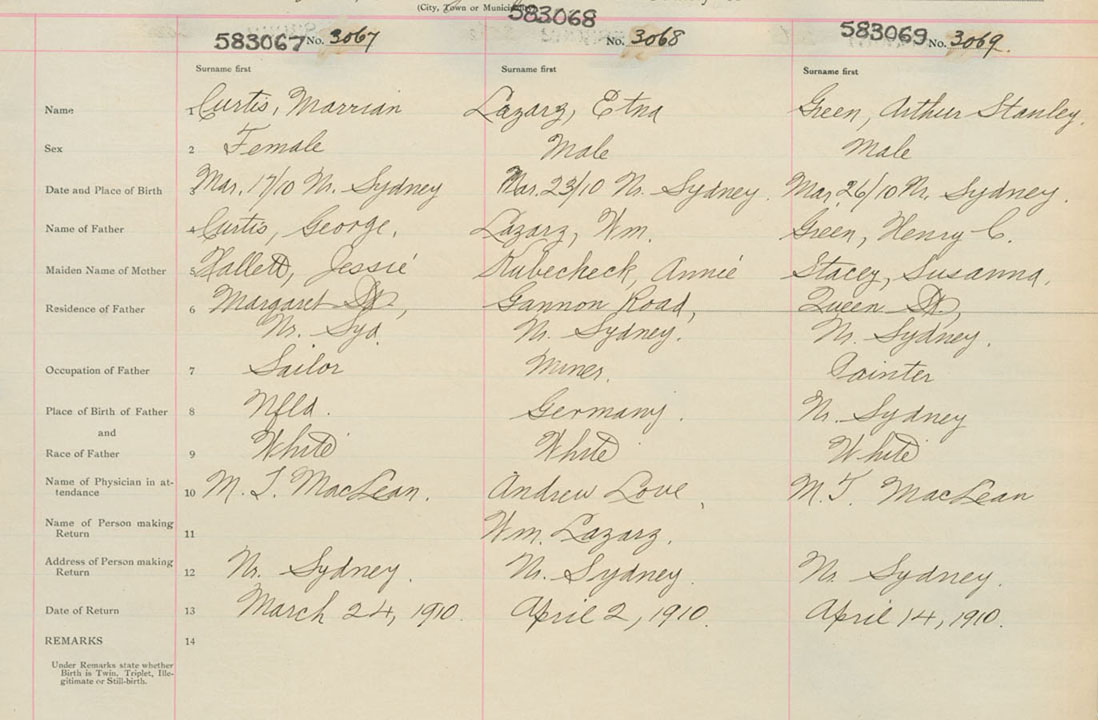 (City, Town or Municipality)
583067 No. 3067 583068 No. 3068 583069 No. 3069.
Surname first Surname first Surname first
Name 1 Curtis, Marrian Lazarz, Etna Green, Arthur Stanley.
Sex 2 Female Male Male
Date and Place of Birth 3 Mar. 17/10 Nr. Sydney Mar. 23/10 Nr. Sydney. Mar. 26/10 Nr. Sydney.
Name of Father 4 Curtis, George. Lazarz, Wm. Green, Henry C.
Maiden Name of Mother 5 Hallett, Jessie Kubecheck, Annie Stacey, Susanna.
Residence of Father 6 Margaret St., Gannon Road, Queen St.,
Nr. Syd. Nr. Sydney. Nr. Sydney.
Occupation of Father 7 Sailor Miner. Painter
Place of Birth of Father 8 Nfld. Germany. Nr. Sydney
and
Race of Father 9 White White White
Name of Physician in at-
tendance 10 M. T. MacLean. Andrew Love, M. T. MacLean
Name of Person making
Return 11 Wm. Lazarz.
Address of Person making
Return 12 Nr. Sydney. Nr. Sydney. Nr. Sydney.
Date of Return 13 March 24, 1910. April 2, 1910. April 14, 1910.
REMARKS 14
Under Remarks state whether
Birth is Twin, Triplet, Ille-
gitimate or Still-birth.